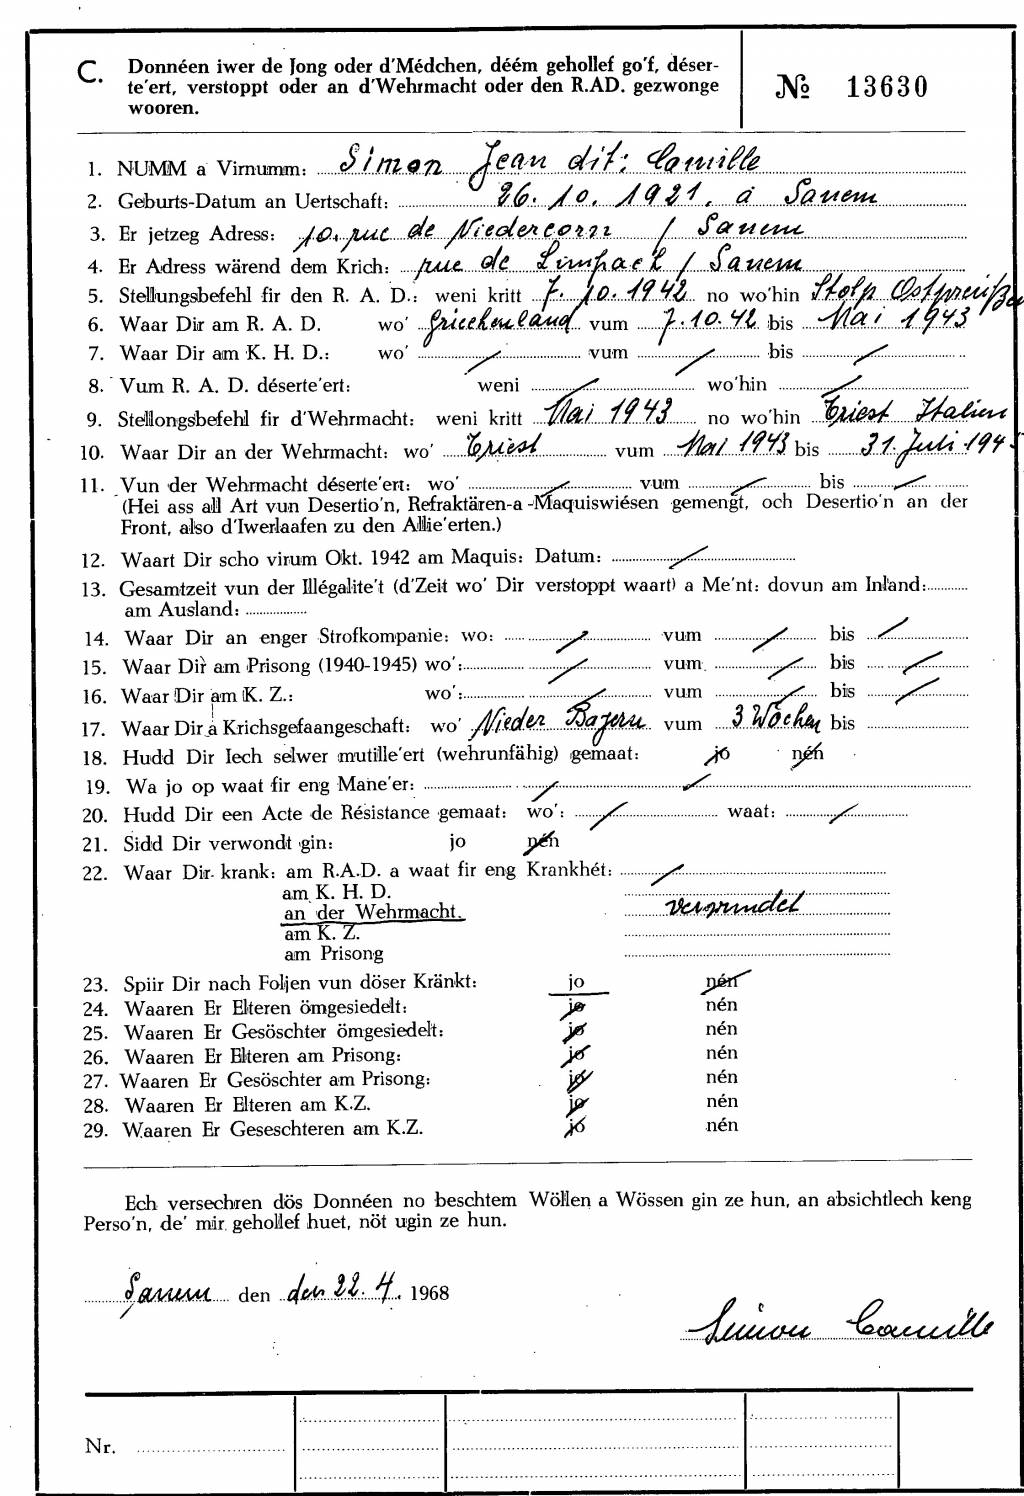 C. Donnéen iwer de Jong oder d'Médchen, déém gehollef go'f, déser-
te'ert, verstoppt oder an d'Wehrmacht oder den R.AD. gezwonge
wooren.
№ 13630
1. NUMM a Virnumm: Simon Jean dit: Camille
2. Geburts-Datum an Uertschaft: 26. 10. 1921. à Sanem
3. Er jetzeg Adress: 10. rue de Niedercorn / Sanem
4. Er Adress wärend dem Krich: rue de Limpach / Sanem
5. Stellungsbefehl fir den R. A. D.: weni kritt 7. 10. 1942 no wo'hin Stolp Ostpreußen
6. Waar Dir am R. A. D. wo' Griechenland vum 7.10.42 bis Mai 1943
7. Waar Dir am K. H. D.: wo' / vum / bis /
8. Vum R. A. D. déserte'ert: weni / wo'hin /
9. Stellongsbefehl fir d'Wehrmacht: weni kritt Mai 1943 no wo'hin Triest Italien
10. Waar Dir an der Wehrmacht: wo' Triest vum Mai 1943 bis 31. Juli 1945
11. Vun der Wehrmacht déserte'ert: wo' / vum / bis /
(Hei ass all Art vun Desertio'n, Refraktären-a -Maquiswiésen gemengt, och Desertio'n an der
Front, also d'Iwerlaafen zu den Allie'erten.)
12. Waart Dir scho virum Okt. 1942 am Maquis: Datum: /
13. Gesamtzeit vun der Illégalite't (d'Zeit wo' Dir verstoppt waart) a Me'nt: dovun am Inland:
am Ausland:
14. Waar Dir an enger Strofkompanie: wo: / vum / bis /
15. Waar Dir am Prisong (1940-1945) wo': / vum / bis /
16. Waar Dir am K. Z.: wo': / vum / bis /
17. Waar Dir a Krichsgefaangeschaft: wo' Nieder Bayern vum 3 Wochen bis
18. Hudd Dir Iech selwer mutille'ert (wehrunfähig) gemaat: jo nén
19. Wa jo op waat fir eng Mane'er: / /
20. Hudd Dir een Acte de Résistance gemaat: wo': / waat: /
21. Sidd Dir verwondt gin: jo nén
22. Waar Dir krank: am R.A.D. a waat fir eng Krankhét: /
am K. H. D.
an der Wehrmacht. verwundet
am K. Z.
am Prisong
23. Spiir Dir nach Foljen vun döser Kränkt: jo nén
24. Waaren Er Elteren ömgesiedelt: jo nén
25. Waaren Er Gesöschter ömgesiedelt: jo nén
26. Waaren Er Elteren am Prisong: jo nén
27. Waaren Er Gesöschter am Prisong: jo nén
28. Waaren Er Elteren am K.Z. jo nén
29. Waaren Er Geseschteren am K.Z. jo nén
Ech versechren dös Donnéen no beschtem Wöllen a Wössen gin ze hun, an absichtlech keng
Perso'n, de' mir gehollef huet, nöt ugin ze hun.
Sanem den den 22. 4. 1968
Simon Camille
Nr.